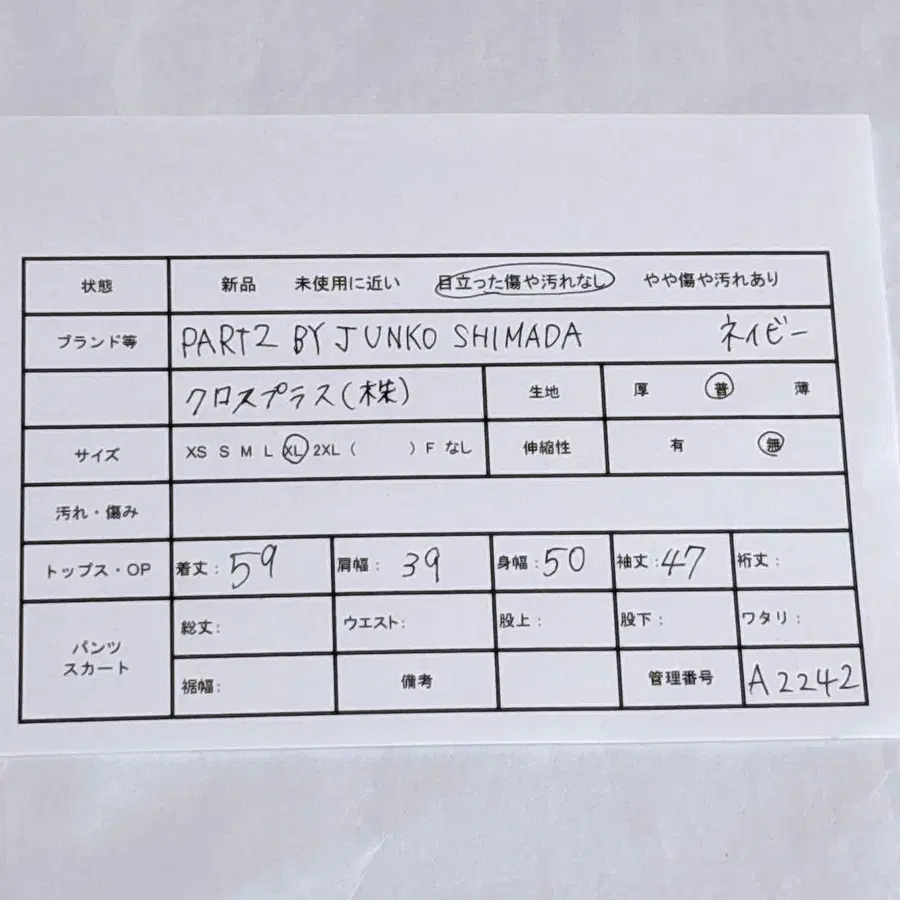 状態 新品 未使用に近い 目立った傷や汚れなし やや傷や汚れあり
ブランド等 PART2 BY JUNKO SHIMADA ネイビー
クロスプラス(株) 生地 厚 普 薄
サイズ XS S M L XL 2XL ( ) F なし 伸縮性 有 無
汚れ・傷み
トップス・OP 着丈:59 肩幅:39 身幅:50 袖丈:47 裄丈:
パンツ
スカート
総丈: ウエスト: 股上: 股下: ワタリ:
裾幅: 備考 管理番号 A2242